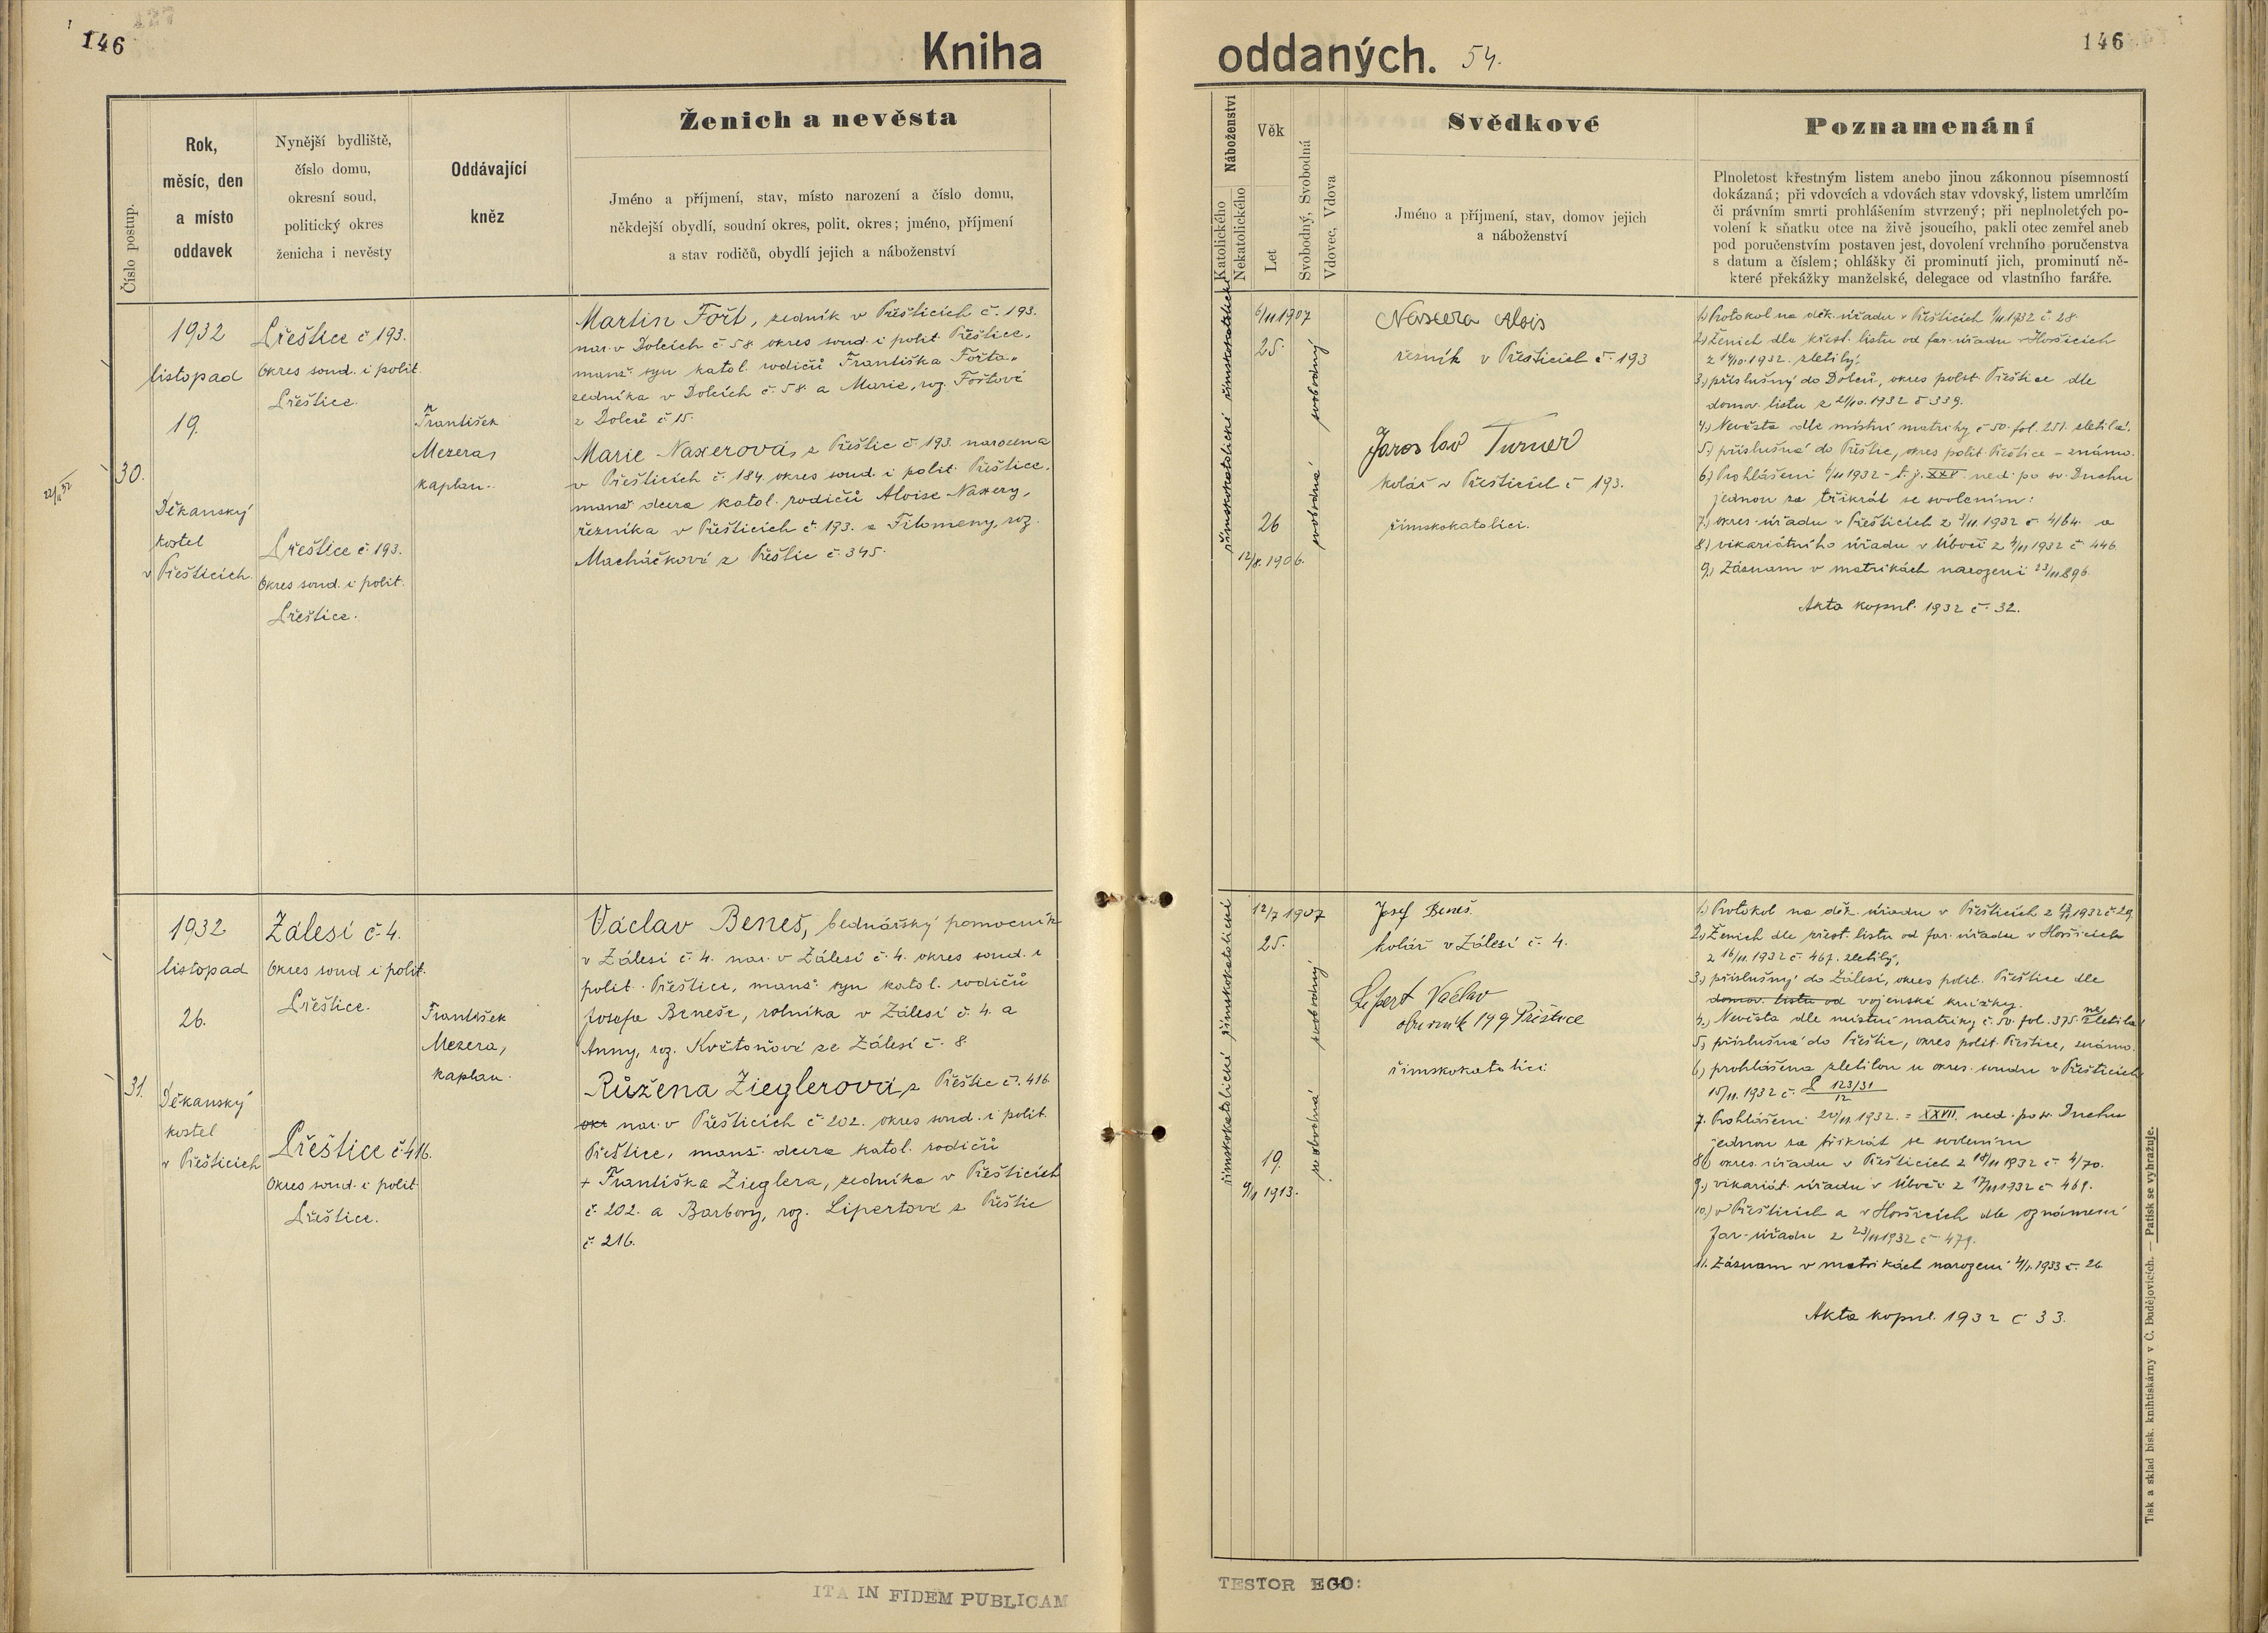 146
Kniha
oddaných. 54.
146
Číslo postup.
Rok,
měsíc, den
a místo
oddavek
Nynější bydliště,
číslo domu,
okresní soud,
politický okres
ženicha i nevěsty
Oddávající
kněz
Ženich a nevěsta
Jméno a příjmení, stav, místo narození a číslo domu,
někdejší obydlí, soudní okres, polit. okres; jméno, příjmení
a stav rodičů, obydlí jejich a náboženství
Náboženství
Katolického
Nekatolického
Věk
Let
Svobodný, Svobodná
Vdovec, Vdova
Svědkové
Jméno a příjmení, stav, domov jejich
a náboženství
Poznamenání
Plnoletost křestným listem anebo jinou zákonnou písemností
dokázaná; při vdovcích a vdovách stav vdovský, listem umrlčím
či právním smrti prohlášením stvrzený; při neplnoletých po-
volení k sňatku otce na živě jsoucího, pakli otec zemřel aneb
pod poručenstvím postaven jest, dovolení vrchního poručenstva
s datum a číslem; ohlášky či prominutí jich, prominutí ně-
které překážky manželské, delegace od vlastního faráře.
30.
1932
listopad
19.
Děkanský
kostel
v Přešticích.
Přeštice č 193.
Okres soud. i polit.
Přeštice.
Přeštice č 193.
Okres soud. i polit.
Přeštice.
František
Mezera,
kaplan.
Martin Fořt, zedník v Přešticích č. 193.
nar. v Dolcích č 58 okres soud. i polit. Přeštice,
manž. syn katol. rodičů Františka Fořta,
zedníka v Dolcích č. 58 a Marie, roz. Fořtové
z Dolců č 15.
Marie Naxerová, z Přeštic č 193. narozena
v Přešticích č. 184. okres soud. i polit. Přeštice.
manž dcera katol. rodičů Aloise Naxery,
řezníka v Přešticích č. 193. a Filomeny, roz.
Macháčkové z Přeštic č. 345.
římskokatolické římskokatolické
6/11 1907
25.
26
12/8. 1906.
svobodná svobodný
Naxera Alois
řezník v Přešticích č. 193
Jaroslav Turner
kolář v Přešticích č 193.
římskokatolíci.
1.) Protokol na děk. úřadu v Přešticích 1/11 1932 č. 28.
2.) Ženich dle křest. listu od far. úřadu v Horšicích
z 14/10. 1932. zletilý.
3.) příslušný do Dolců, okres polit. Přeštice dle
domov. listu z 21/10. 1932 č 339.
4.) Nevěsta dle místní matriky č 50. fol. 251. zletilá.
5.) příslušná do Přeštic, okres polit. Přeštice – známo.
6.) Prohlášení 6/11 1932 – t. j. XXV. ned. po sv. Duchu
jednou za třikrát se svolením:
7.) okres. úřadu v Přešticích z 3/11. 1932 č. 4/64. a
8.) vikariátního úřadu v Úboči z 4/11 1932 č 446.
9.) Záznam v matrikách narození
Akta kopul. 1932 č. 32.
31.
1932
listopad
26.
Děkanský
kostel
v Přešticích
Zálesí č. 4.
Okres soud i polit.
Přeštice.
Přeštice č 416.
Okres soud. i polit
Přeštice.
František
Mezera,
kaplan.
Václav Beneš, bednářský pomocník
v Zálesí č. 4. nar. v Zálesí č. 4. okres soud. i
polit. Přeštice, manž. syn katol. rodičů
Josefa Beneše, rolníka v Zálesí č. 4. a
Anny, roz. Květoňové ze Zálesí č. 8.
Růžena Zieglerová, z Přeštic č. 416.
okr nar. v Přešticích č. 202. okres soud. i polit.
Přeštice, manž. dcera katol. rodičů
+ Františka Zieglera, zedníka v Přešticích
č. 202. a Barbory, roz. Lipertové z Přeštic
č. 216.
římskokatolické římskokatolické
12/7 1907
25.
19.
9/1 1913.
svobodná svobodný
Josef Beneš.
kolář v Zálesí č. 4.
Lipert Václav
obuvník 199 Přeštice
římskokatolíci
1.) Protokol na děk. úřadu v Přešticích z 1932 č 29.
2.) Ženich dle křest. listu od far. úřadu v Horšicích
z 16/11. 1932 č. 467. zletilý,
3.) příslušný do Zálesí, okres polit. Přeštice dle
domov. listu od vojenské knížky.
4.) Nevěsta dle místní matriky č. 50. fol. 375. nezletilá
5.) příslušná do Přeštic, okres polit. Přeštice, známo.
6.) prohlášena zletilou u okres. soudu v Přešticích
15/11. 1932 č. P 123/31
12
7. Prohlášení 20/11 1932. = XXVII. ned. po sv. Duchu
jednou za třikrát se svolením
8.) okres. úřadu v Přešticích z 18/11 1932 č. 4/70.
9.) vikariát. úřadu v Úboči z 17/11 1932 č 469.
10.) v Přešticích a v Horšicích dle oznámení
far. úřadu z 23/11 1932 č. 479.
11. Záznam v matrikách narození 4/1. 1933 č. 26.
Akta kopul. 1932 č 33.
Tisk a sklad bisk. knihtiskárny v Č. Budějovicích. — Patisk se vyhražuje.
ITA IN FIDEM PUBLICAM
TESTOR EGO: